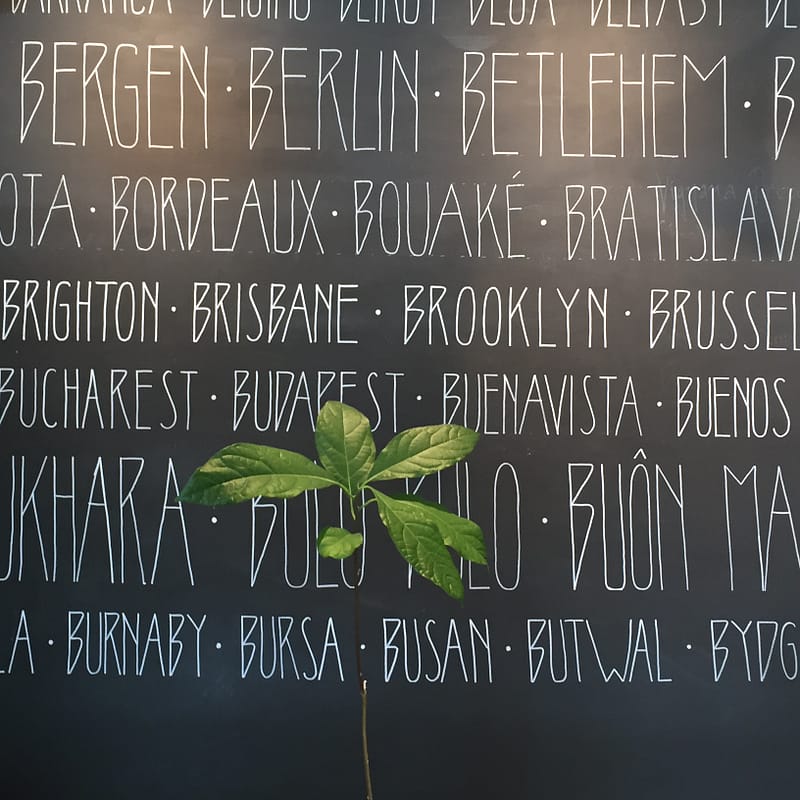 BEIJING · BEIRUT · BEJA · BELFAST
BERGEN · BERLIN · BETLEHEM · B
OTA · BORDEAUX · BOUAKÉ · BRATISLAVA
BRIGHTON · BRISBANE · BROOKLYN · BRUSSEL
BUCHAREST · BUDAPEST · BUENAVISTA · BUENOS
UKHARA · BULO · BUÔN MA
LA · BURNABY · BURSA · BUSAN · BUTWAL · BYDG